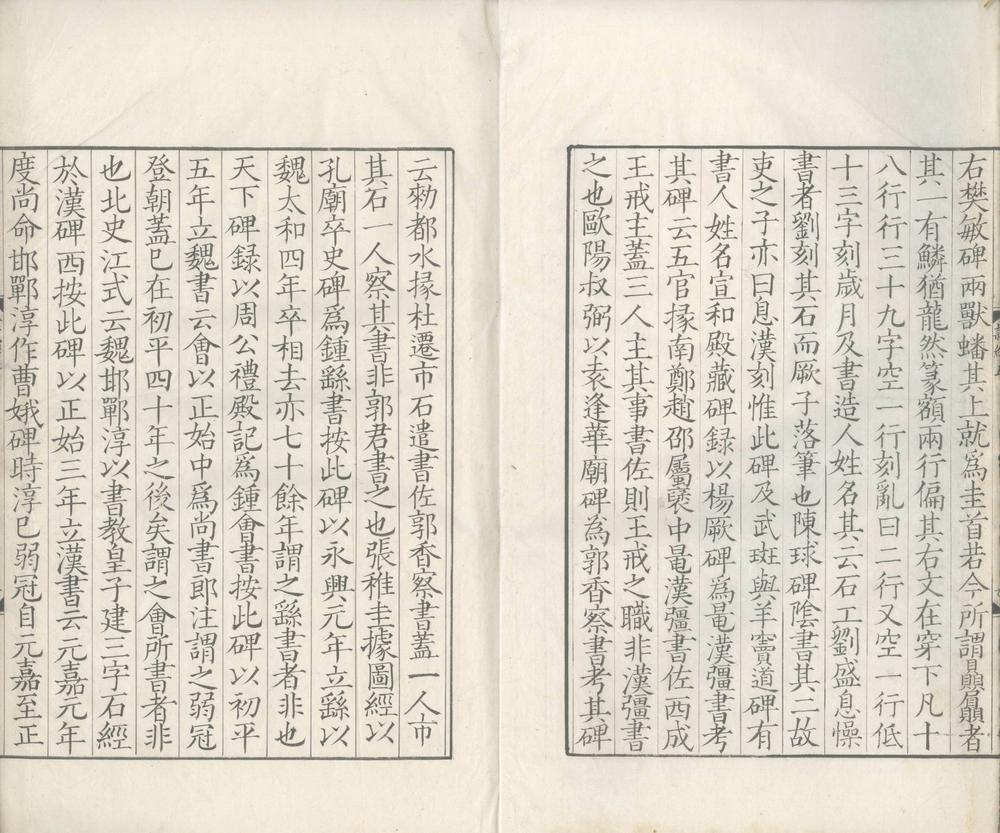 右樊敏碑兩獸蟠其上就爲圭首若今所謂贔屭者
其一有鱗猶龍然篆額兩行偏其右文在穿下凡十
八行行三十九字空一行刻亂曰二行又空一行低
十三字刻歲月及書造人姓名其云石工劉盛息懆
書者劉刻其石而厥子落筆也陳球碑陰書其二故
吏之子亦曰息漢刻惟此碑及武斑與羊竇道碑有
書人姓名宣和殿藏碑録以楊厥碑爲鼂漢彊書考
其碑云五官掾南鄭趙邵屬襃中鼂漢彊書佐西成
王戒主蓋三人主其事書佐則王戒之職非漢彊書
之也歐陽叔弼以袁逢華廟碑為郭香察書考其碑
云勑都水掾杜遷市石遣書佐郭香察書蓋一人市
其石一人察其書非郭君書之也張稚圭據圖經以
孔廟卒史碑爲鍾繇書按此碑以永興元年立繇以
魏太和四年卒相去亦七十餘年謂之繇書者非也
天下碑録以周公禮殿記爲鍾會書按此碑以初平
五年立魏書云會以正始中爲尚書郎注謂之弱冠
登朝蓋已在初平四十年之後矣謂之會所書者非
也北史江式云魏邯鄲淳以書教皇子建三字石經
於漢碑西按此碑以正始三年立漢書云元嘉元年
度尚命邯鄲淳作曹娥碑時淳已弱冠自元嘉至正